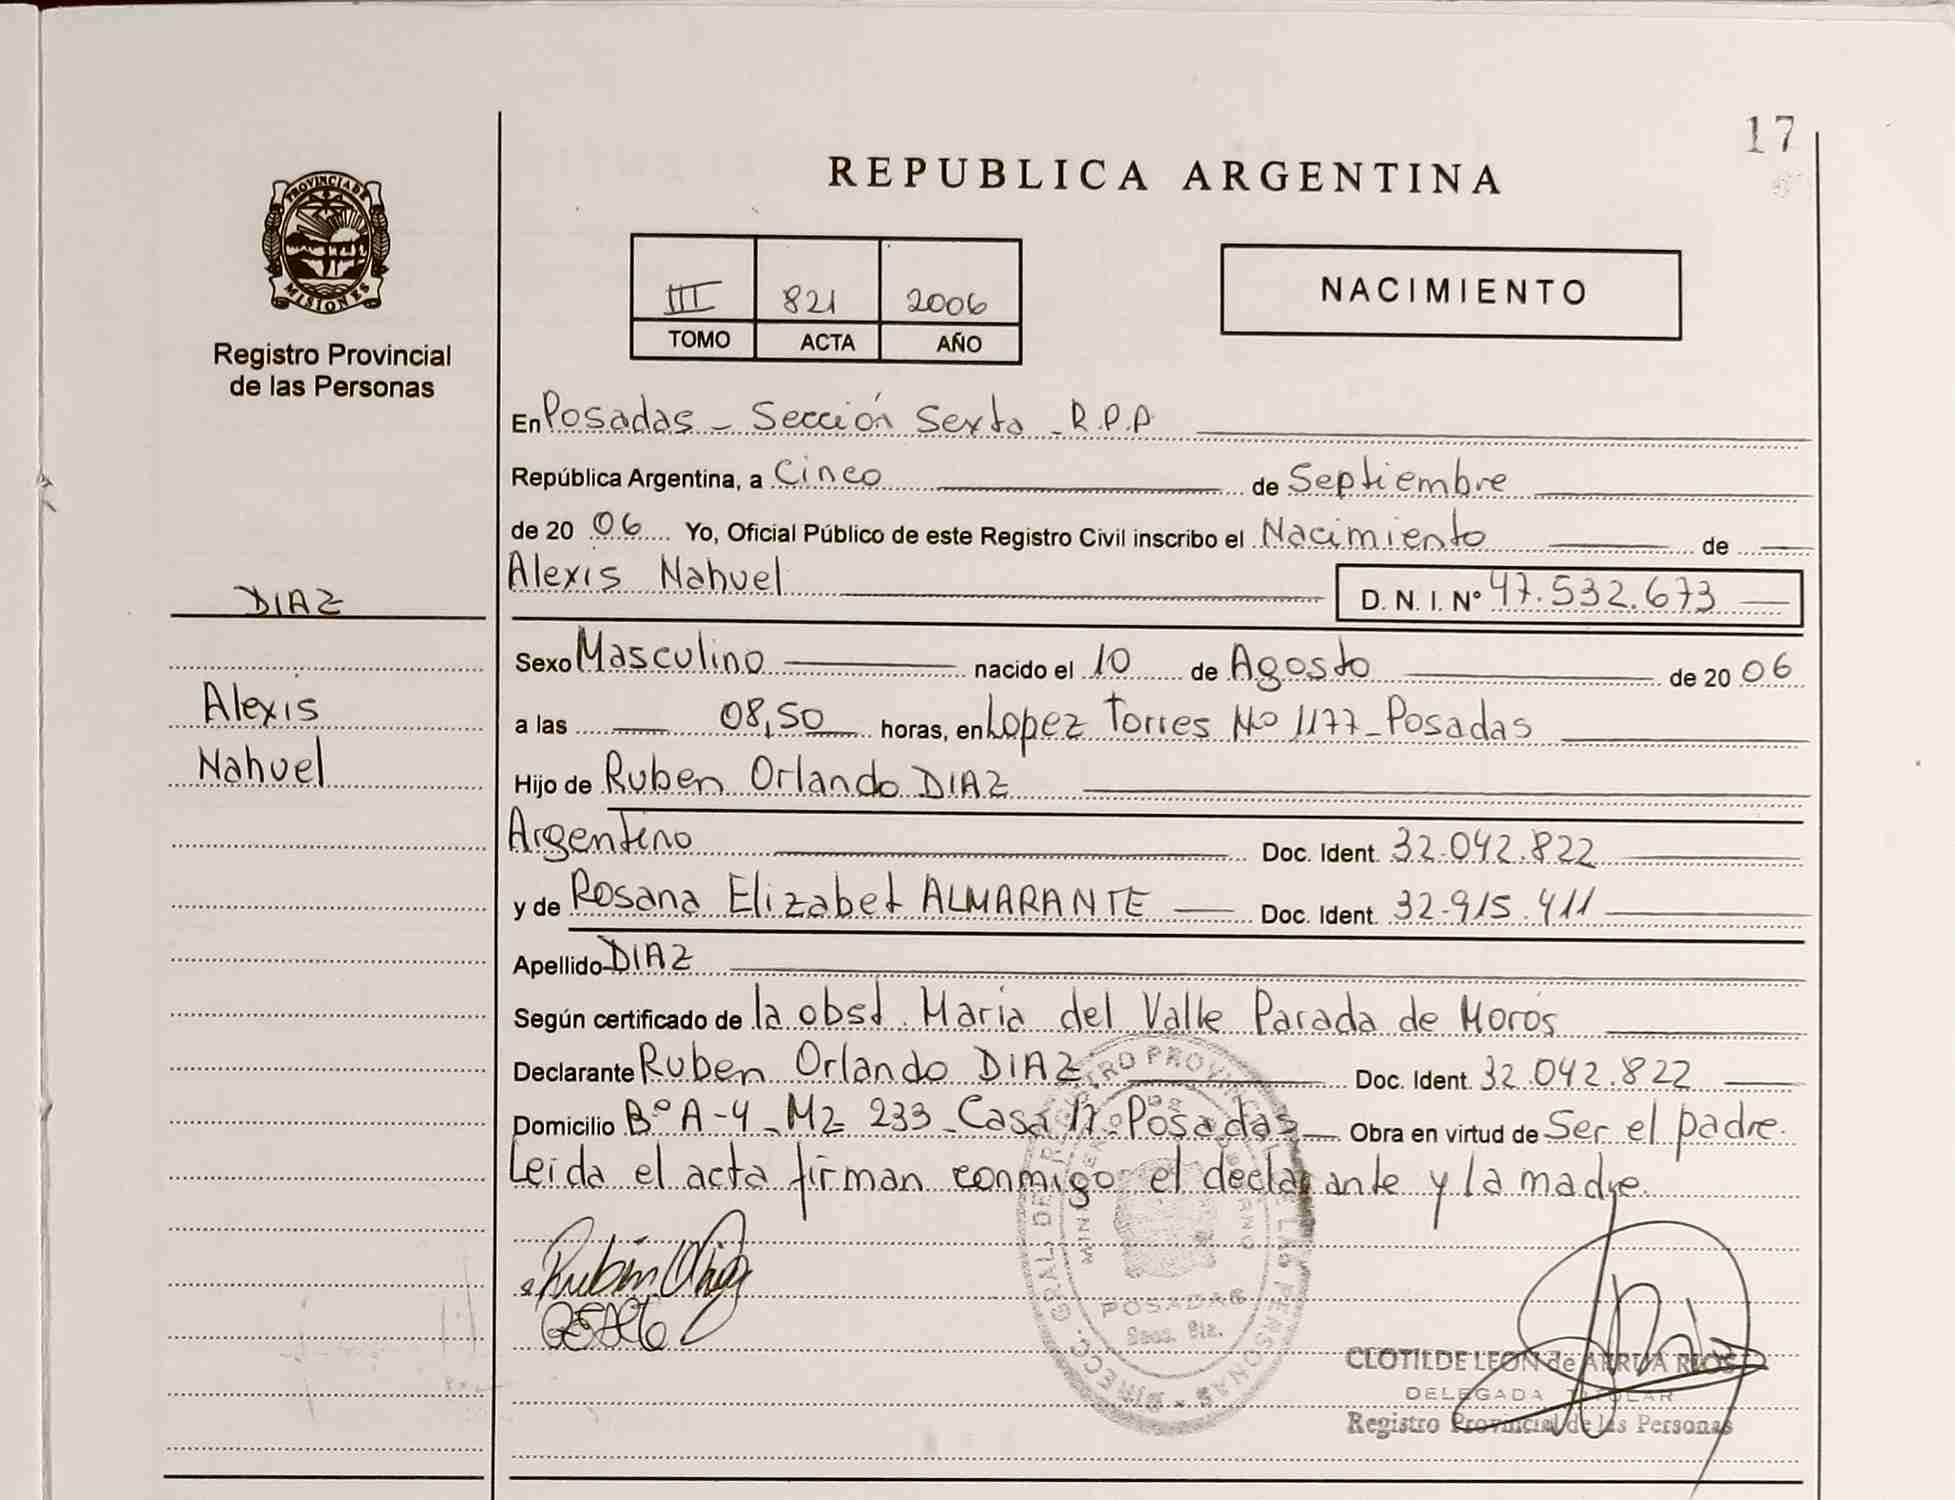 17
REPUBLICA ARGENTINA
PROVINCIA DE
MISIONES
Registro Provincial
de las Personas
III 821 2006
TOMO ACTA AÑO
NACIMIENTO
En Posadas - Sección Sexta - R.P.P
República Argentina, a Cinco de Septiembre
de 20 06 Yo, Oficial Público de este Registro Civil inscribo el Nacimiento de
Alexis Nahuel D. N. I. Nº 47.532.673
DIAZ
Alexis
Nahuel
Sexo Masculino nacido el 10 de Agosto de 20 06
a las 08,50 horas, en Lopez Torres Nº 1177 - Posadas
Hijo de Ruben Orlando DIAZ
Argentino Doc. Ident. 32.042.822
y de Rosana Elizabet ALMARANTE Doc. Ident. 32.915.411
Apellido DIAZ
Según certificado de la obst. Maria del Valle Parada de Morós
Declarante Ruben Orlando DIAZ Doc. Ident. 32.042.822
Domicilio Bº A-4 - Mz 233 - Casa 17 - Posadas Obra en virtud de Ser el padre.
Leida el acta firman conmigo el declarante y la madre.
Rubén Diaz
POSADAS
CLOTILDE LEON de ARRUA RIOS
DELEGADA TITULAR
Registro Provincial de las Personas